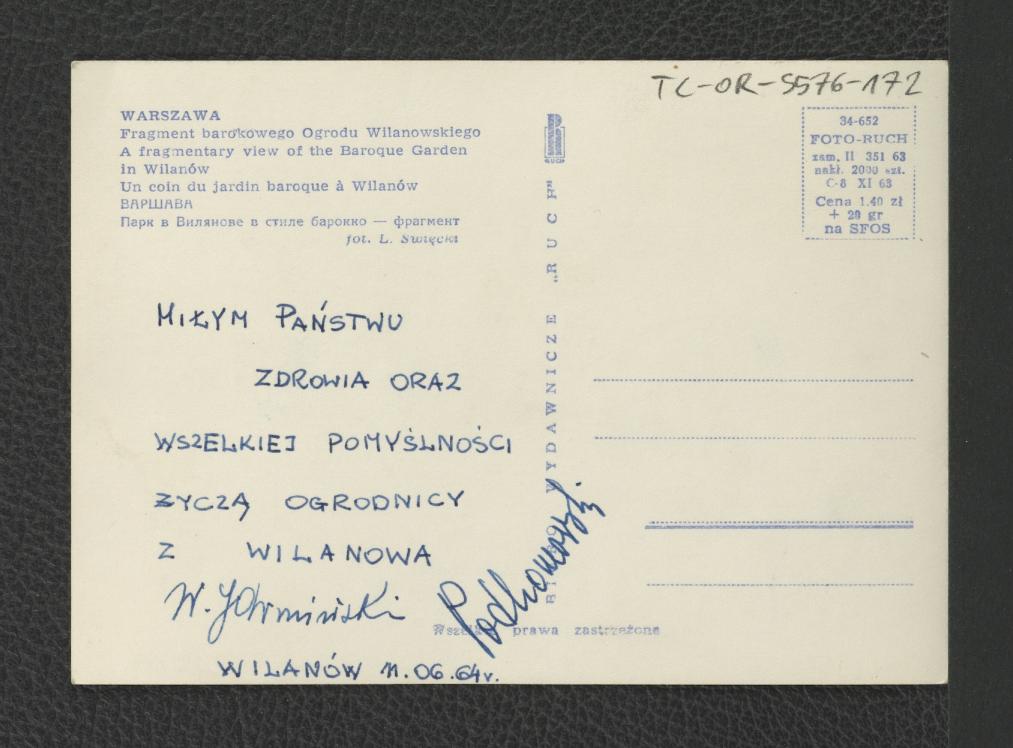 TC-OR-S576-172
WARSZAWA
Fragment barokowego Ogrodu Wilanowskiego
A fragmentary view of the Baroque Garden
in Wilanów
Un coin du jardin baroque à Wilanów
ВАРШАВА
Парк в Вилянове в стиле барокко — фрагмент
fot. L. Święcki
RUCH
34-652
FOTO-RUCH
zam. II 351 63
nakł. 2000 szt.
C-8 XI 63
Cena 1.40 zł
+ 20 gr
na SFOS
BIURO WYDAWNICZE „RUCH"
MIŁYM PAŃSTWU
ZDROWIA ORAZ
WSZELKIEJ POMYŚLNOŚCI
ZYCZĄ OGRODNICY
Z WILANOWA
W.
Wszelkie prawa zastrzeżone
WILANÓW 11.06.64r.